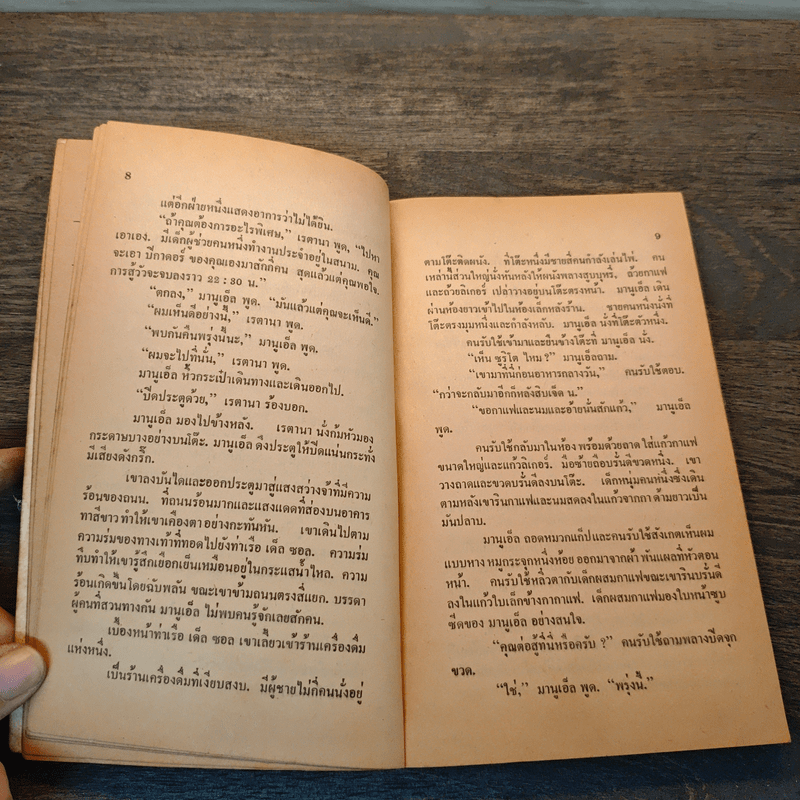 8
แต่อีกฝ่ายหนึ่งแสดงอาการว่าไม่ได้ยิน.
“ถ้าคุณต้องการอะไรพิเศษ,” เรตานา พูด, “ไปหา
เอาเอง. มีเด็กผู้ช่วยคนหนึ่งทำงานประจำอยู่ในสนาม. คุณ
จะเอา ปีกาดอร์ ของคุณเองมาสักกี่คน สุดแล้วแต่คุณพอใจ.
การสู้วัวจะจบลงราว 22 : 30 น.”
“ตกลง,” มานูเอ็ล พูด. “มันแล้วแต่คุณจะเห็นดี.”
“ผมเห็นดีอย่างนี้,” เรตานา พูด.
“พบกันคืนพรุ่งนี้นะ,” มานูเอ็ล พูด.
“ผมจะไปที่นั่น,” เรตานา พูด.
มานูเอ็ล หิ้วกระเป๋าเดินทางและเดินออกไป.
“ปิดประตูด้วย,” เรตานา ร้องบอก.
มานูเอ็ล มองไปข้างหลัง. เรตานา นั่งก้มหัวมอง
กระดาษบางอย่างบนโต๊ะ. มานูเอ็ล ดึงประตูให้ปิดแน่นกระทั่ง
มีเสียงดังกริ๊ก.
เขาลงบันไดและออกประตูมาสู่แสงสว่างจ้าที่มีความ
ร้อนของถนน. ที่ถนนร้อนมากและแสงแดดที่ส่องบนอาคาร
ทาสีขาว ทำให้เขาเคืองตา อย่างกะทันหัน. เขาเดินไปตาม
ความร่มของทางเท้าที่ทอดไปยังท่าเรือ เด็ล ซอล. ความร่ม
ทึบทำให้เขารู้สึกเยือกเย็นเหมือนอยู่ในกระแสน้ำไหล. ความ
ร้อนเกิดขึ้นโดยฉับพลัน ขณะเขาข้ามถนนตรงสี่แยก. บรรดา
ผู้คนที่สวนทางกัน มานูเอ็ล ไม่พบคนรู้จักเลยสักคน.
เบื้องหน้าท่าเรือ เด็ล ซอล เขาเลี้ยวเข้าร้านเครื่องดื่ม
แห่งหนึ่ง.
เป็นร้านเครื่องดื่มที่เงียบสงบ. มีผู้ชายไม่กี่คนนั่งอยู่
9
ตามโต๊ะติดผนัง. ที่โต๊ะหนึ่งมีชายสี่คนกำลังเล่นไพ่. คน
เหล่านี้ส่วนใหญ่นั่งหันหลังให้ผนังพลางสูบบุหรี่, ถ้วยกาแฟ
และถ้วยลิเกอร์ เปล่าวางอยู่บนโต๊ะตรงหน้า. มานูเอ็ล เดิน
ผ่านห้องยาวเข้าไปในห้องเล็กหลังร้าน. ชายคนหนึ่งนั่งที่
โต๊ะตรงมุมหนึ่งและกำลังหลับ. มานูเอ็ล นั่งที่โต๊ะตัวหนึ่ง.
คนรับใช้เข้ามาและยืนข้างโต๊ะที่ มานูเอ็ล นั่ง.
“เห็น ซูริโต ไหม ?” มานูเอ็ลถาม.
“เขามาที่นี่ก่อนอาหารกลางวัน,” คนรับใช้ตอบ.
“กว่าจะกลับมาอีกก็หลังสิบเจ็ด น.”
“ขอกาแฟและนมและอ้ายนั่นสักแก้ว,” มานูเอ็ล
พูด.
คนรับใช้กลับมาในห้อง พร้อมด้วยถาด ใส่แก้วกาแฟ
ขนาดใหญ่และแก้วลิเกอร์. มือซ้ายถือบรั่นดีขวดหนึ่ง. เขา
วางถาดและขวดบรั่นดีลงบนโต๊ะ. เด็กหนุ่มคนหนึ่งซึ่งเดิน
ตามหลังเขารินกาแฟและนมสดลงในแก้วจากกา ด้ามยาวเป็น
มันปลาบ.
มานูเอ็ล ถอดหมวกแก๊ปและคนรับใช้สังเกตเห็นผม
แบบหาง หมูกระจุกหนึ่งห้อย ออกมาจากผ้า พันแผลที่หัวตอน
หน้า. คนรับใช้ หลิ่วตากับเด็กผสมกาแฟขณะเขารินบรั่นดี
ลงในแก้วใบเล็กข้างกากาแฟ. เด็กผสมกาแฟมองใบหน้าซูบ
ซีดของ มานูเอ็ล อย่างสนใจ.
“คุณต่อสู้ที่นี่หรือครับ ?” คนรับใช้ถามพลางปิดจุก
ขวด.
“ใช่,” มานูเอ็ล พูด. “พรุ่งนี้.”